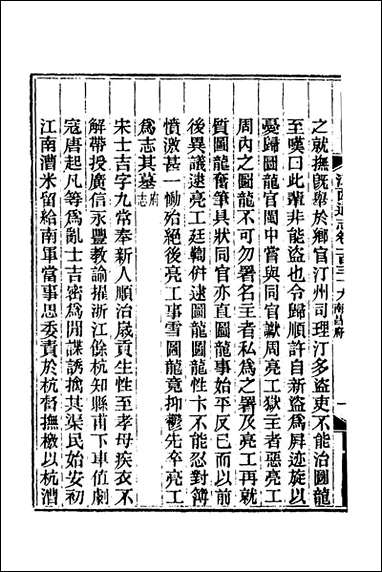 江西通志卷一百三十九 南昌府 一
之就撫旣舉於鄉官汀州司理汀多盜吏不能治圖龍
至嘆曰此輩非能盜也令歸順許自新盜爲屏迹旋以
憂歸圖龍官閩中嘗與同官讞周亮工獄主者惡亮工
周內之圖龍不可勿署名主者私爲之署及亮工再就
質圖龍奮筆具狀同官亦直圖龍事始平反已而以前
後異議逮亮工廷鞫併逮圖龍圖龍性卞不能忍對簿
憤激甚一慟殆絕後亮工事雪圖龍竟抑鬱先卒亮工
爲志其墓府志
宋士吉字九常奉新人順治歲貢生性至孝母疾衣不
解帶授廣信永豐教諭擢浙江餘杭知縣甫下車值劇
寇唐起凡等爲亂士吉密爲閒諜誘擒其渠民始安初
江南漕米留給南軍當事思委責於杭督撫檄以杭漕